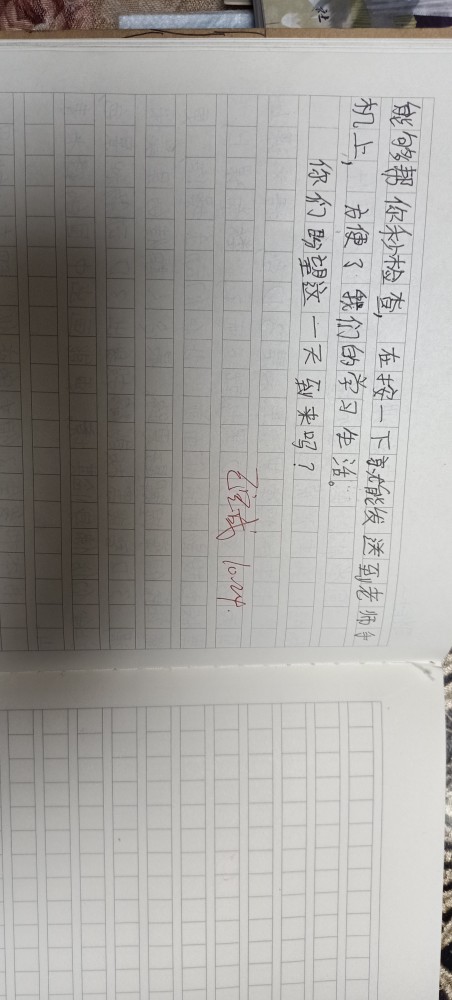 能够帮你秒检查,在按一下就能发送到老师手
机上,方便了我们的学习生活。
你们盼望这一天到来吗?
已完成 10.24.